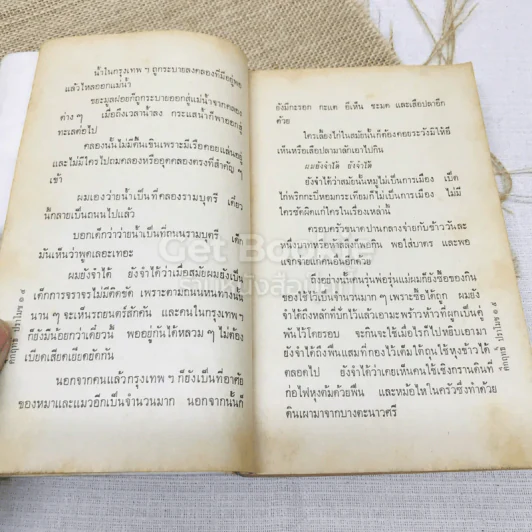 น้ำในกรุงเทพ ๆ ถูกระบายลงคลองที่มีอยู่พอ
แล้วไหลออกแม่น้ำ
ขยะมูลฝอยก็ถูกระบายออกสู่แม่น้ำจากคลอง
ต่าง ๆ เมื่อถึงเวลาน้ำลง กระแสน้ำก็พาออกสู่
ทะเลต่อไป
คลองนั้นไม่มีตื้นเขินเพราะมีเรือคอยแล่นอยู่
และไม่มีใครไปถมคลองหรืออุดคลองตรงที่สำคัญ ๆ
เข้า
ผมเองว่ายน้ำเป็นที่คลองรามบุตรี เดี๋ยว
นี้กลายเป็นถนนไปแล้ว
บอกเด็กว่าว่ายน้ำเป็นที่ถนนรามบุตรี เด็ก
มันเห็นว่าพูดเลอะเทอะ
ผมยังจำได้ ยังจำได้ว่าเมื่อสมัยผมยังเป็น
เด็กการจราจรไม่มีติดขัด เพราะตามถนนหนทางนั้น
นาน ๆ จะเห็นรถยนต์สักคัน และคนในกรุงเทพ ๆ
ก็ยังมีน้อยกว่าเดี๋ยวนี้ พออยู่กันได้หลวม ๆ ไม่ต้อง
เบียดเสียดเยียดยัดกัน
นอกจากคนแล้วกรุงเทพ ๆ ก็ยังเป็นที่อาศัย
ของหมาและแมวอีกเป็นจำนวนมาก นอกจากนั้นก็
คึกฤทธิ์ ปราโมช ๑๔
ยังมีกระรอก กะแต อีเห็น ชะมด และเสือปลาอีก
ด้วย
ใครเลี้ยงไก่ในสมัยนั้นก็ต้องคอยระวังมิให้อี
เห็นหรือเสือปลามาลักเอาไปกิน
ผมยังจำได้ ยังจำได้
ยังจำได้ว่าสมัยนั้นหมูไม่เป็นการเมือง เป็ด
ไก่พริกกะปิหอมกระเทียมก็ไม่เป็นการเมือง ไม่มี
ใครขัดผิดแก่ใครในเรื่องเหล่านี้
ครอบครัวขนาดปานกลางจ่ายกับข้าววันละ
หนึ่งบาทหรือห้าสลึงก็พอกิน พอใส่บาตร และพอ
แจกจ่ายแก่คนอื่นอีกด้วย
ถึงอย่างนั้นคนรุ่นพ่อรุ่นแม่ผมก็ยังซื้อของกิน
ของใช้ไว้เป็นจำนวนมาก ๆ เพราะซื้อได้ถูก ผมยัง
จำได้ถึงหลักที่ปักไว้แล้วเอามะพร้าวห้าวที่ผูกเป็นคู่
พันไว้โดยรอบ จะกินจะใช้เมื่อไรก็ไปหยิบเอามา
ยังจำได้ถึงฟืนแสมที่กองไว้เต็มใต้ถุนใช้หุงข้าวได้
ตลอดไป ยังจำได้ว่าเคยเห็นคนใช้เชิงกรานดินที่
ก่อไฟหุงต้มด้วยฟืน และหม้อไหในครัวซึ่งทำด้วย
ดินเผามาจากบางตะนาวศรี
คึกฤทธิ์ ปราโมช ๑๕
Get Books
ร้านหนังสือเก่า